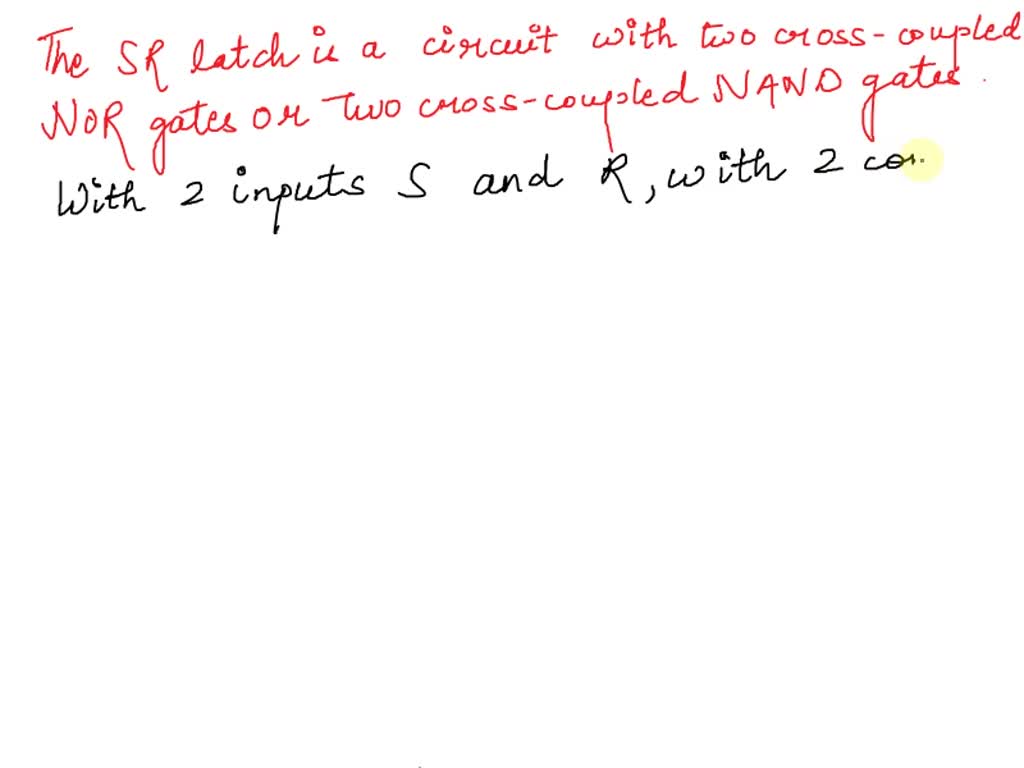 The SR latch is a circuit with two cross-coupled
NOR gates or two cross-coupled NAND gates.
With 2 inputs S and R, with 2